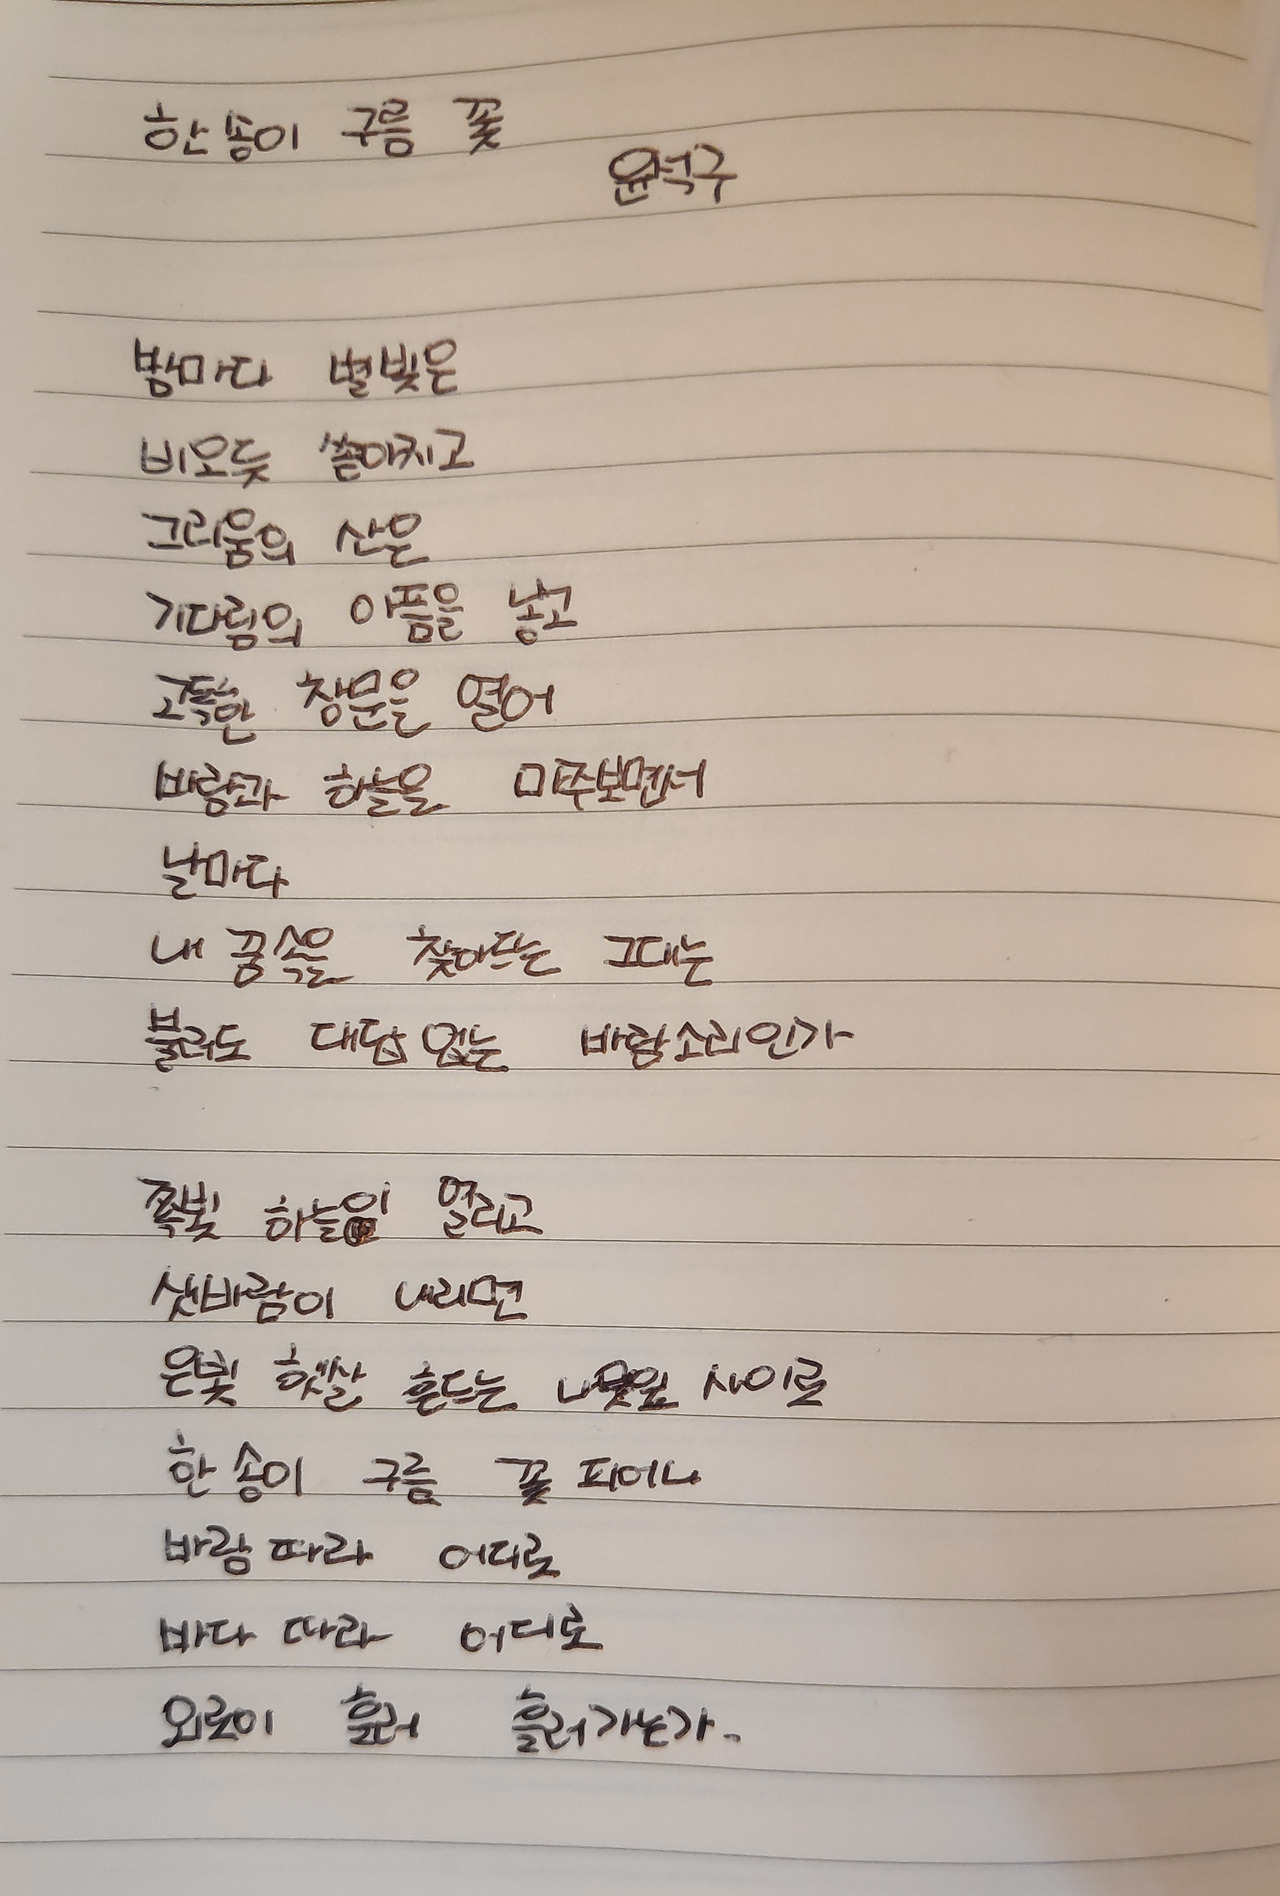 한 송이 구름 꽃
윤석구
밤마다 별빛은
비오듯 쏟아치고
그리움의 산은
기다림의 아픔을 낳고
고독한 창문을 열어
바람과 하늘을 마주보면서
날마다
내 꿈속을 찾아드는 그대는
불러도 대답 없는 바람소리인가
쪽빛 하늘이 열리고
샛바람이 내리면
은빛 햇살 흔드는 나뭇잎 사이로
한 송이 구름 꽃 피어나
바람 따라 어디로
바다 따라 어디로
외로이 흘러 흘러가는가.